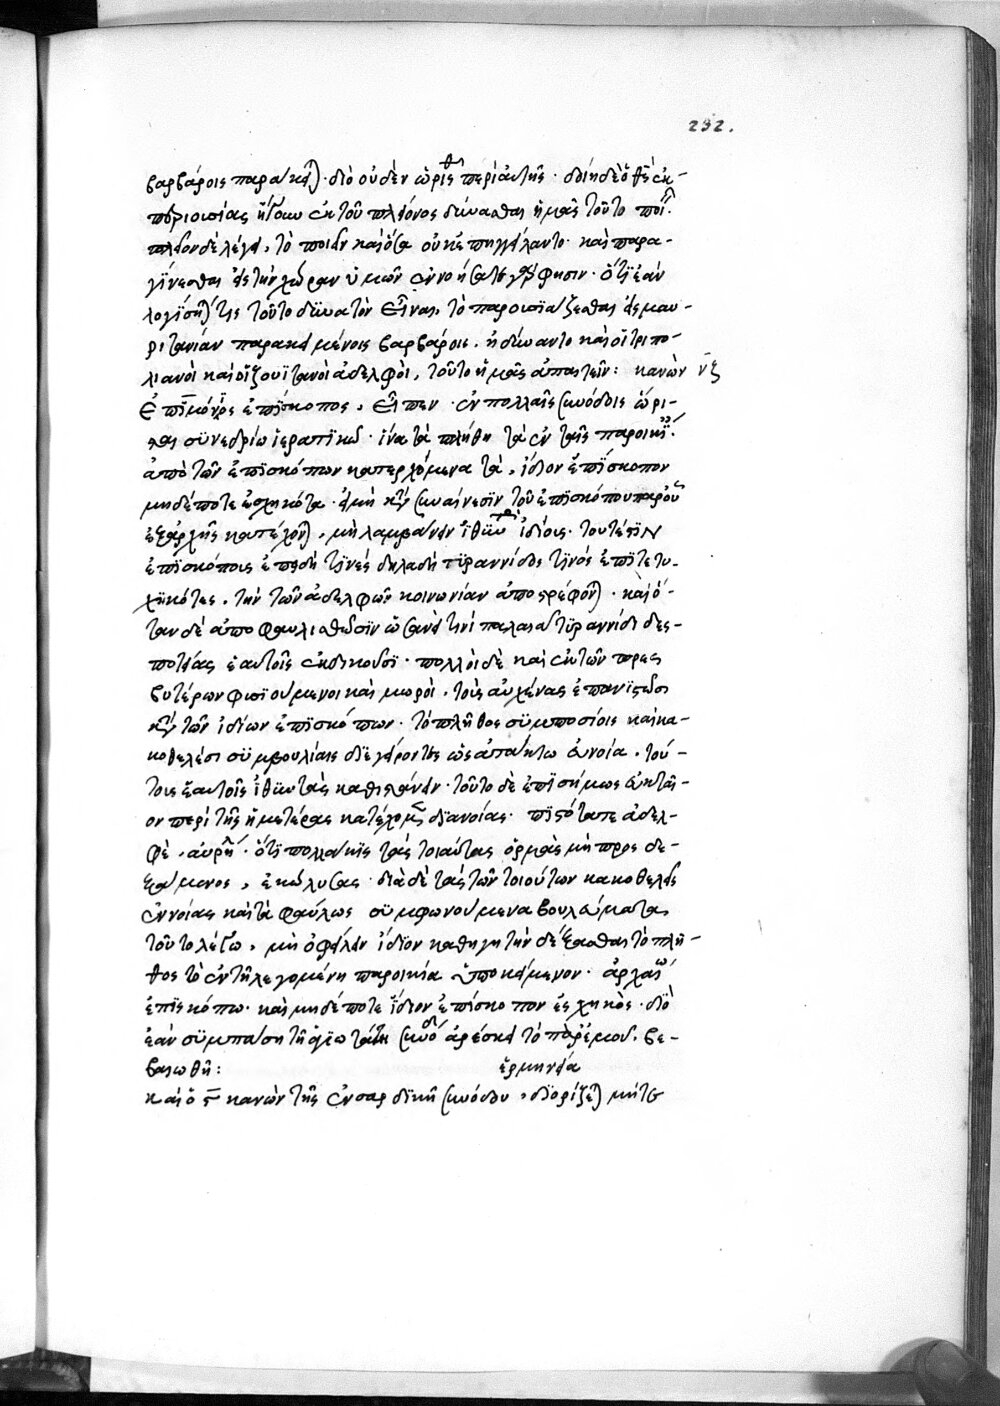 232.
βαρβάροις παράκει). διὸ οὐδὲν ὡρίσθη περὶ αὐτῆς. δῴη δὲ ὁ θς ἐκ
περιουσίας ἤγουν ἐκ τοῦ πλείονος δύνασθαι ἡμᾶς τοῦτο ποιῆ.
πλεῖον δὲ λέγει, τὸ ποιεῖν καὶ ὅσα οὐκ ἐπηγγείλαντο. καὶ παρα-
γίνεσθαι εἰς τὴν χώραν ὑμῶν
λογίση) τις τοῦτο δυνατὸν εἶναι, τὸ παρουσϊάζεσθαι εἰς μαυ-
ριτανίαν παρακειμένοις βαρβάροις. ἠδύναντο καὶ οἱ τριπο-
λιανοὶ καὶ οἱ ζουϊτανοὶ ἀδελφοὶ, τοῦτο ἡμᾶς ἀπαιτεῖν: κανὼν νζ
ἐπίσκοπος, εἶπεν. ἐν πολλαῖς συνόδοις ὥρι-
σται συνεδρίῳ ἱερατικῷ. ἵνα τὰ πλήθη τὰ ἐν ταῖς παροικί.
ἀπὸ τῶν ἐπισκόπων κατερχόμενα τὰ, ἴδιον ἐπίσκοπον
μηδέποτε ἐσχηκότα. εἰ μὴ συναίνεσιν τοῦ ἐπισκόπου παρ οὗ
ἐξαρχῆς κατέχον), μὴ λαμβάνειν ἰθύντορ ἰδίους. τουτέστιν
ἐπισκόπους ἐπειδή τινές δηλαδὴ τυραννίδος τινός ἐπιτετυ-
χηκότες, τὴν τῶν ἀδελφῶν κοινωνίαν ἀποστρέφον). καὶ ὅ-
ταν δὲ ἀποφαυλισθῶσιν ὡσανεί τινι παλαιᾷ τυραννίδι δες-
ποτείας ἑαυτοῖς ἐκδικοῦσι. πολλοὶ δὲ καὶ ἐκ τῶν πρες
βυτέρων φυσιούμενοι καὶ μωροὶ, τοὺς αὐχένας ἐπανιστῶσι
κτ τῶν ἰδίων ἐπισκόπων. τὸ πλῆθος συμποσίοις καὶ κα-
κοθελέσι συμβουλίαις διεγείροντες ὡς ἀτάκτῳ εὐνοίᾳ. τού-
τοις ἑαυτοῖς ἰθύντας καθιστάνειν. τοῦτο δὲ ἐπισήμως εὐκταῖ-
ον περὶ τῆς ἡμετέρας κατέχομ διανοίας. πιστότατε ἀδελ-
φὲ, αὐρήλ. ὅτι πολλάκις τὰς τοιαύτας ὁρμὰς μὴ προσδε-
ξάμενος, ἐκώλυσας. διὰ δὲ τὰς τῶν τοιούτων κακοθελεῖς
ἐννοίας καὶ τὰ φαύλως συμφωνούμενα βουλεύματα,
τοῦτο λέγω, μὴ ὀφείλειν ἴδιον καθηγητὴν δέξασθαι τὸ πλῆ-
θος τὸ ἐν τῇ λεγομένῃ παροικίᾳ ὑποκείμενον. ἀρχαίω
ἐπισκόπῳ. καὶ μηδέποτε ἴδιον ἐπίσκοπον ἐσχηκὸς. διὸ
ἐὰν συμπάσῃ τῇ ἁγιωτάτῃ συνόδ ἀρέσκει τὸ παρ ἐμοῦ. βε-
βαιωθῇ: ἑρμηνεία
καὶ ὁ ς κανὼν τῆς ἐν σαρδικῇ συνόδου, διορίζε) μήτε